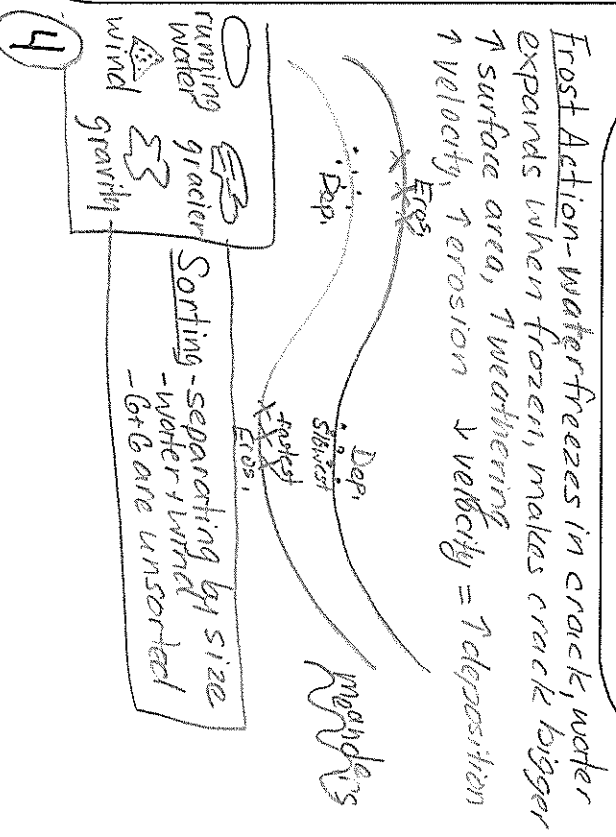 Frost Action-water freezes in crack, water
expands when frozen, makes crack bigger
↑ surface area, ↑ weathering
↑ velocity, ↑ erosion ↓ velocity = ↑ deposition
Eros.
XXX
Dep.
Dep.
slowest
XXXX
fastest
Eros.
meanders
running
water
glacier
wind
gravity
Sorting-separating by size
-water + wind
-G+G are unsorted
4